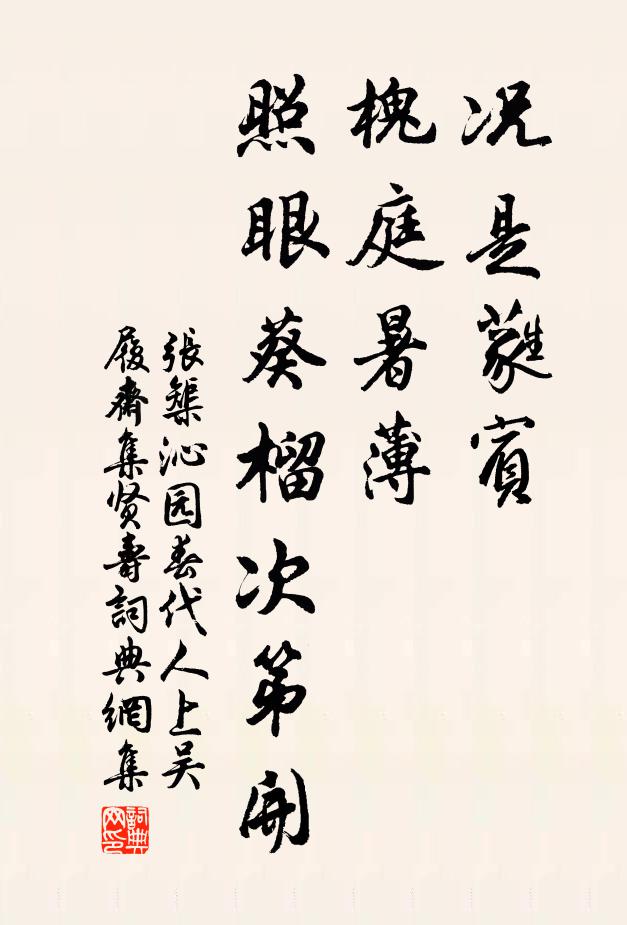 况是蕤賓
槐庭暑薄
照眼葵榴次第開
張榘沁园春代人上吴
履齋集贤壽詞典網集
詞典
网印